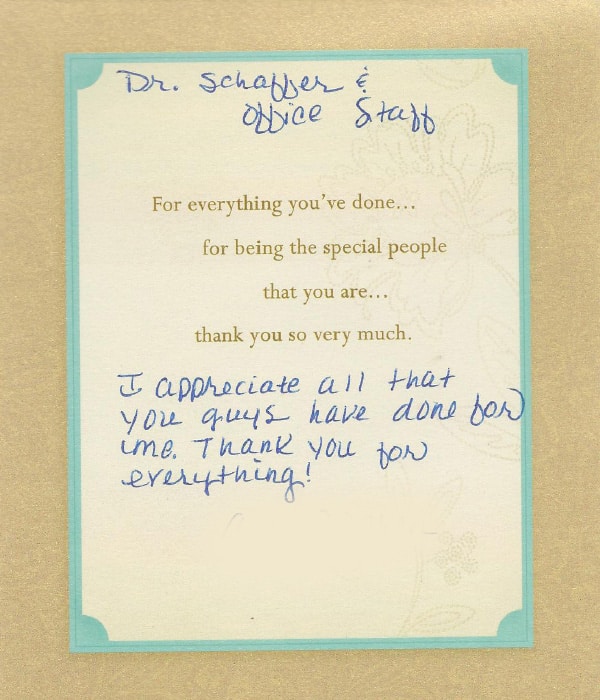 Dr. Schaffer &
Office Staff
For everything you've done...
for being the special people
that you are...
thank you so very much.
I appreciate all that
you guys have done for
me. Thank you for
everything!